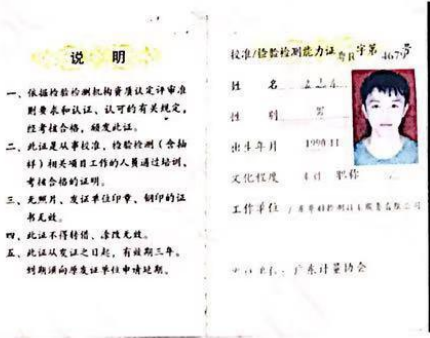 说 明
一、依据检验检测机构资质认定评审准
则要求和认证、认可的有关规定,
经考核合格,颁发此证。
二、此证是从事校准、检验检测(含抽
样)相关项目工作的人员通过培训、
考核合格的证明。
三、无照片、发证单位印章、钢印的证
书无效。
四、此证不得转借、涂改无效。
五、此证从发证之日起,有效期三年。
到期须向原发证单位申请延期。
校准/检验检测能力证 粤R字第 4679号
姓 名
性 别 男
出生年月 1990.11
文化程度 职称
工作单位 广东 检测技术服务有限公司
广东计量协会